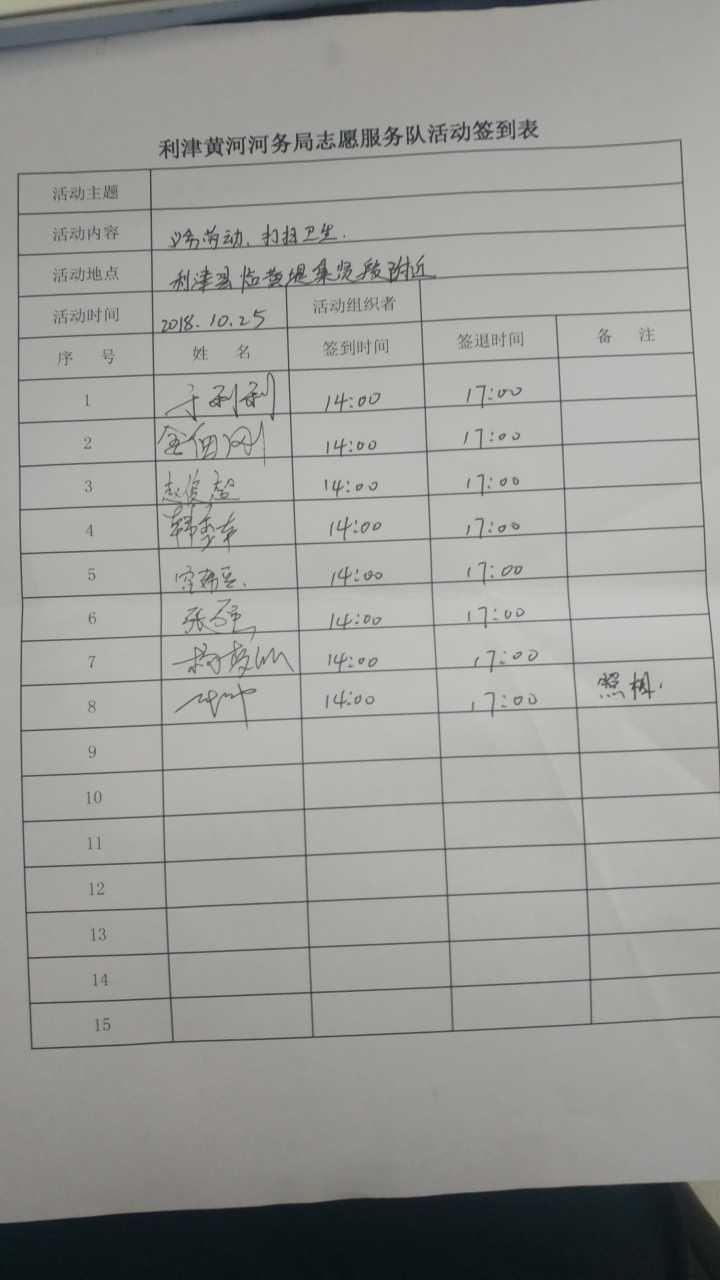 利津黄河河务局志愿服务队活动签到表
活动主题
活动内容 义务劳动、打扫卫生.
活动地点 利津县临黄堤集贤段附近
活动时间 2018.10.25 活动组织者
序 号 姓 名 签到时间 签退时间 备 注
1 于利利 14:00 17:00
2 14:00 17:00
3 赵俊超 14:00 17:00
4 韩秀车 14:00 17:00
5 14:00 17:00
6 14:00 17:00
7 14:00 17:00
8 14:00 17:00 照相.
9
10
11
12
13
14
15